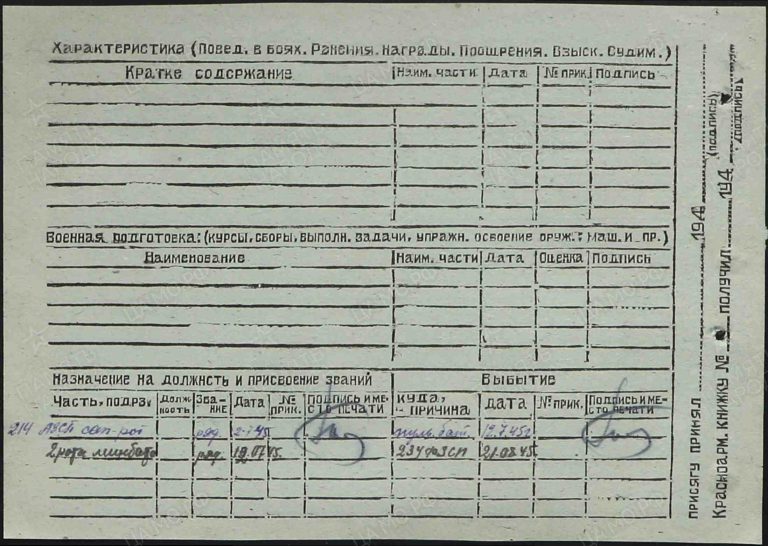 Характеристика (Повед. в боях. Ранения. Награды. Поощрения. Взыск. Судим.)
Кратке содержание Наим. части Дата № прик. Подпись
Военная подготовка: (курсы, сборы, выполн. задачи, упражн. освоение оруж.; маш. и пр.)
Наименование Наим. части Дата Оценка Подпись
Назначение на должнсть и присвоение званий Выбытие
Часть, подраз. Долж- ность Зва- ние Дата № прик. Подпись име- сто печати Куда, причина Дата № прик. Подпись име- сто печати
214 АЗСП сап-рот ряд. 2-7-45 пуль.бат. 12.7.45г
2 рота минбата ряд. 12.07.45. 234 ФЗСП 21.08.45
Присягу принял 194 (подпись)
Красноарм. книжку № получил 194 (подпись)